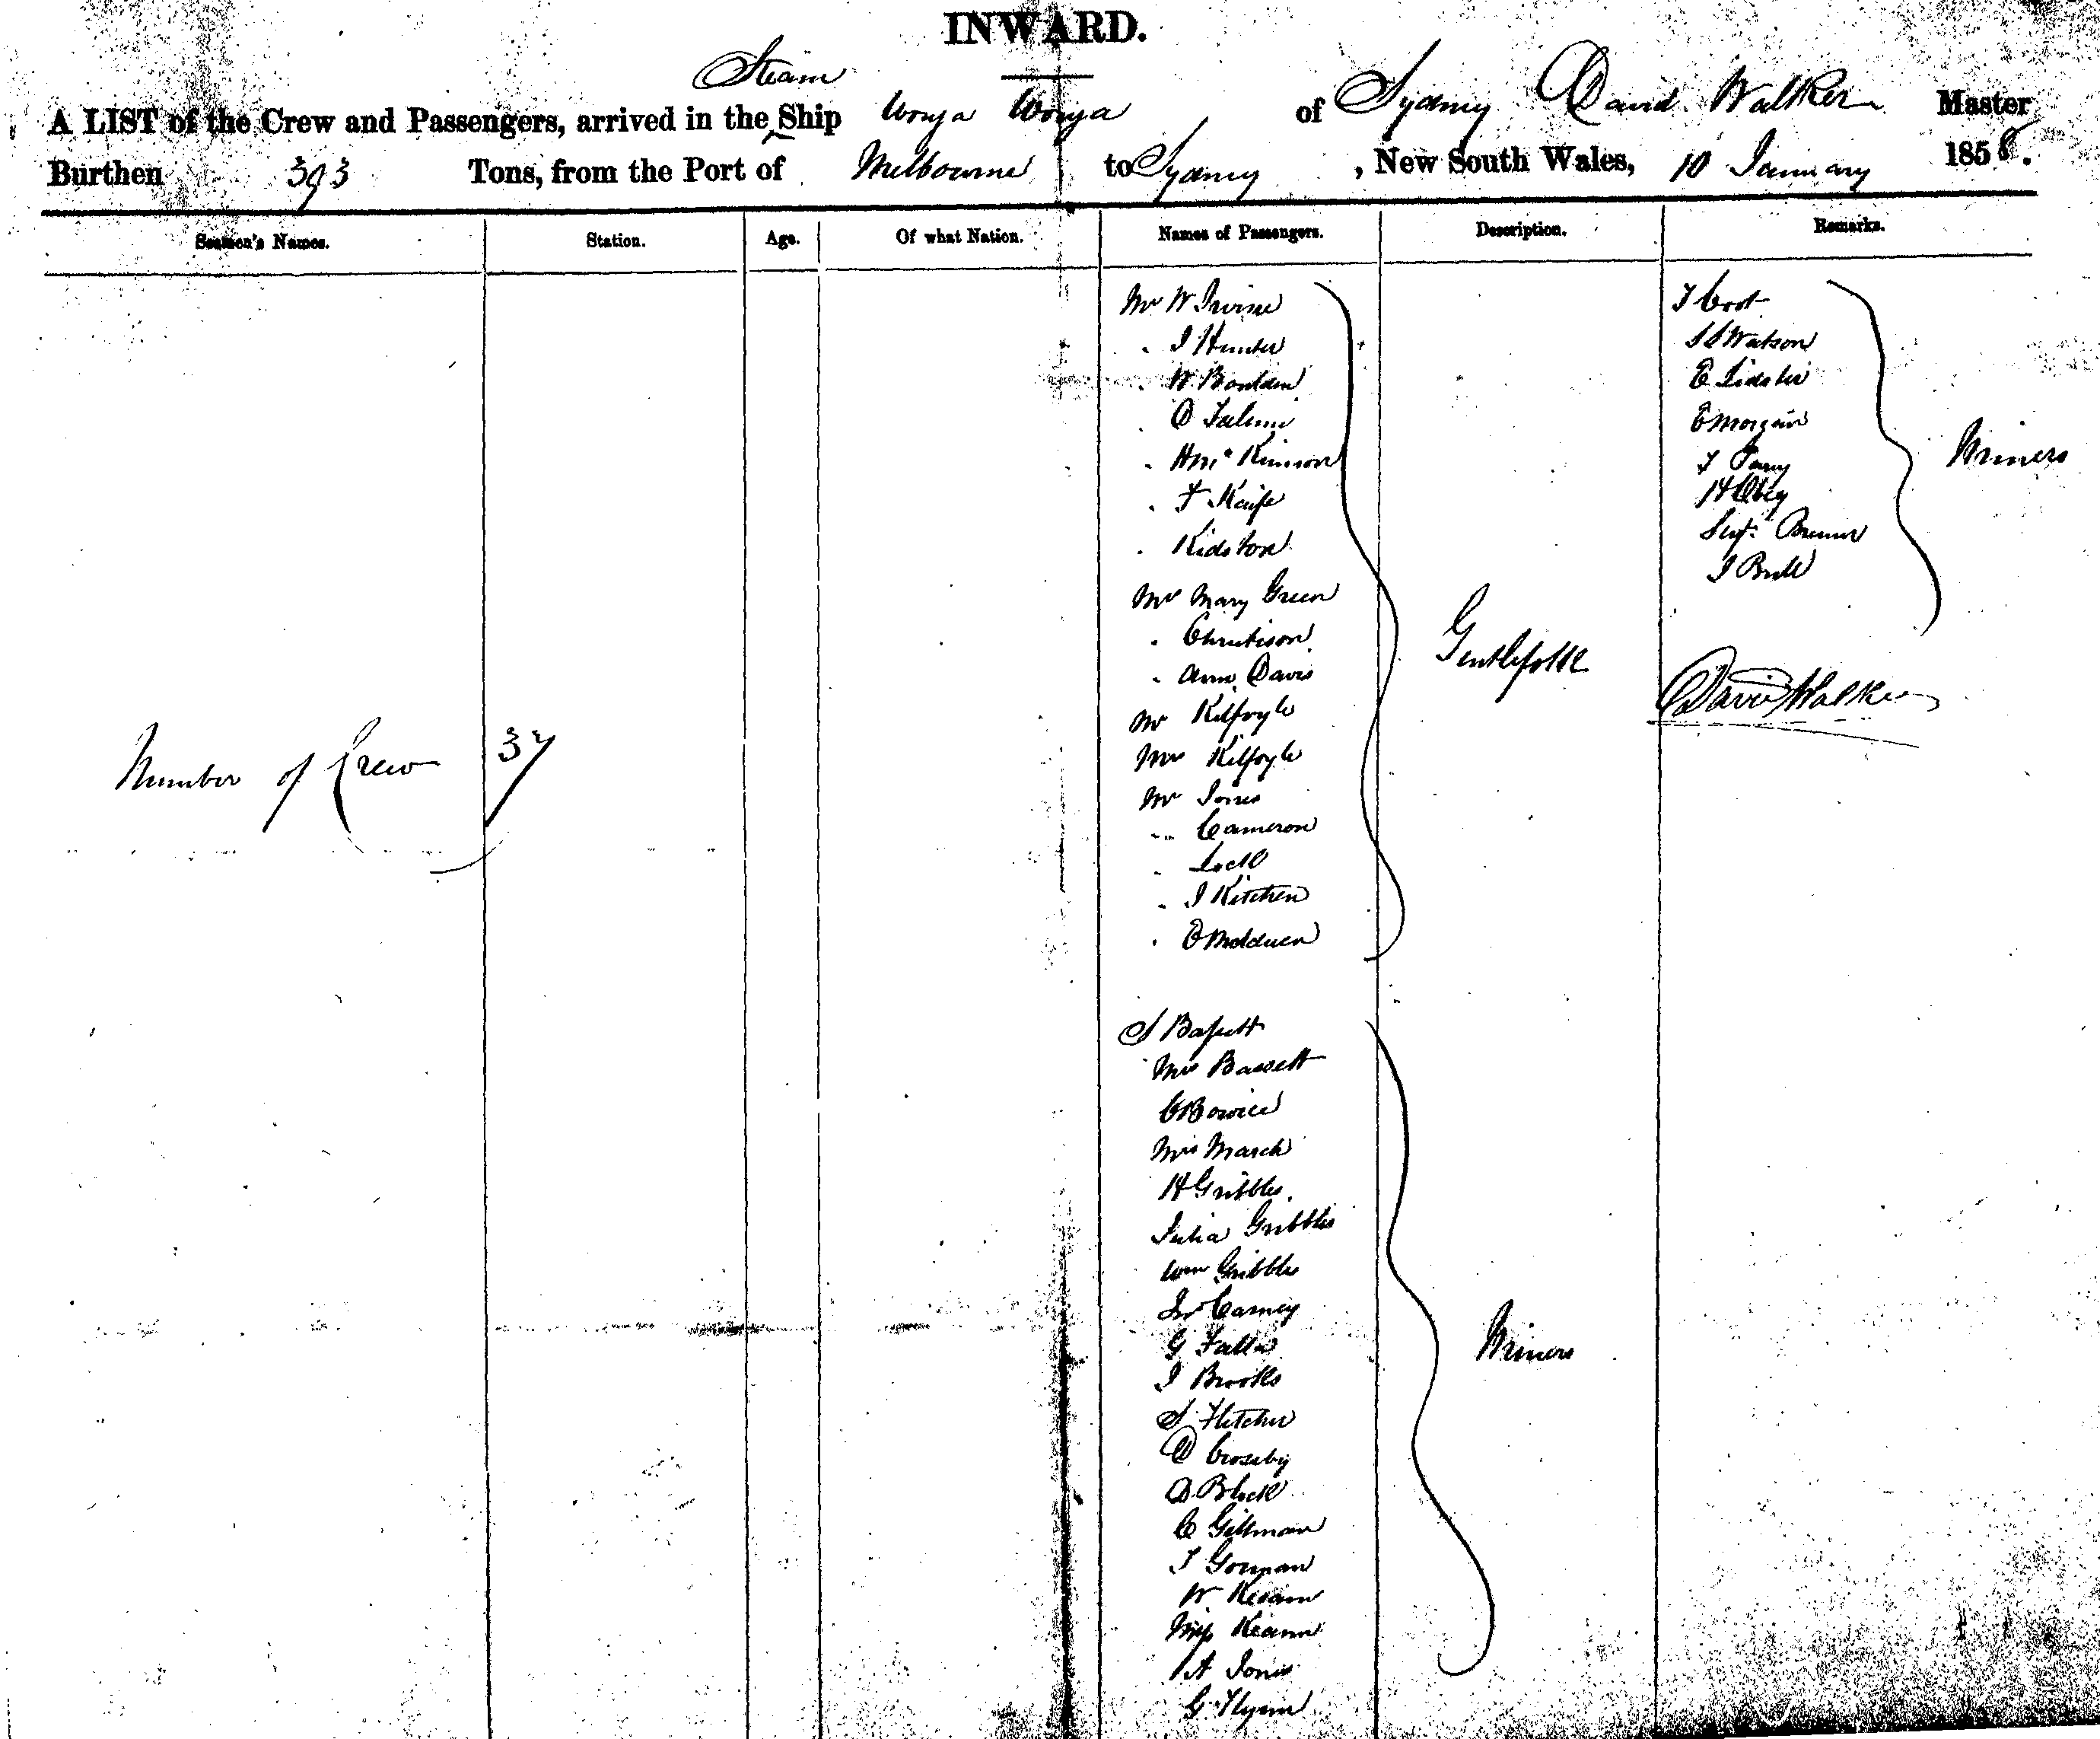 INWARD.
Steam
A LIST of the Crew and Passengers, arrived in the Ship Wonga Wonga of Sydney David Walker Master
Burthen 393 Tons, from the Port of Melbourne to Sydney, New South Wales, 10 January 1858.
Seamen's Names. Station. Age. Of what Nation. Names of Passengers. Description. Remarks.
Number of Crew 37
Mr W Irvine
" J Hunter
" W Boulden
" D
" H Mc Kinnon
" F Knife
" Kidston
Mrs Mary Green
" Christison
" Ann Davis
Mr Kilfoyle
Mrs Kilfoyle
Mr Jones
" Cameron
" Lock
" J Kitchen
" E
Gentlefolk
S Bassett
Mrs Bassett
C Bowice
Mrs March
H Gribbles
Julia Gribbles
Wm Gribbles
Jno Carney
G Falla
J Brooks
S Fletcher
D Crossby
D Block
C Gillman
T Gorman
W Keann
Miss Keann
A Jones
G Flynn
Miners
T Coot
S S Watson
E Lidster
E Morgan
T Parry
H Obey
Sergt Brenner
J Bull
Miners
David Walker